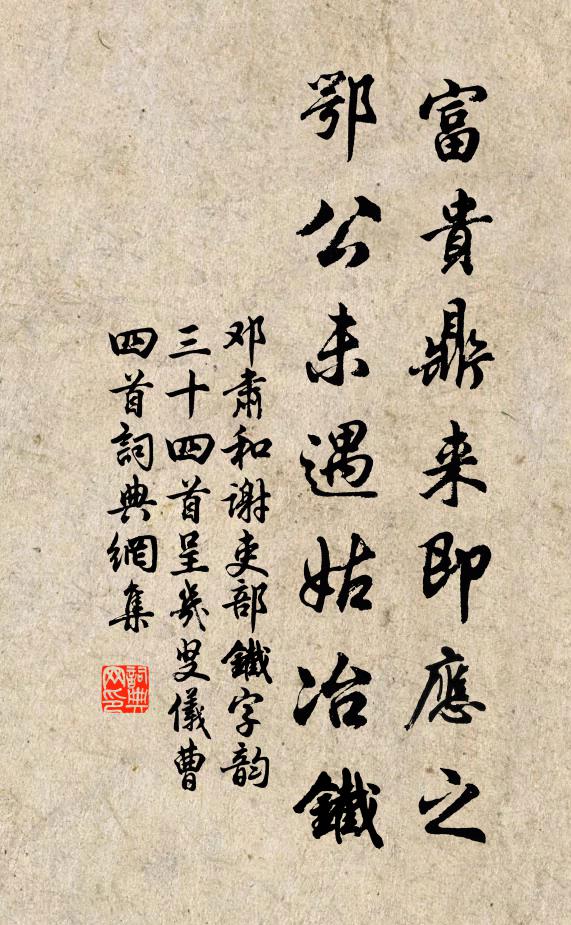 富貴鼎来即應之
鄂公未遇姑冶鐵
邓肅和谢吏部鐵字韵
三十四首呈幾叟儀曹
四首詞典網集
詞典网印